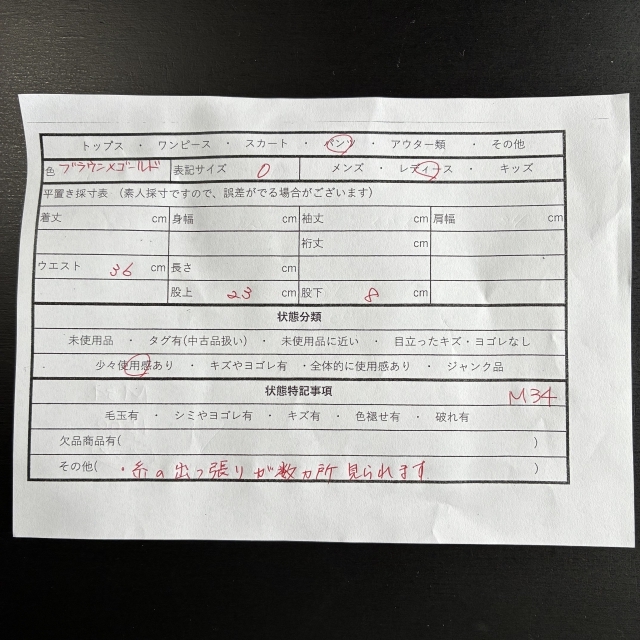 トップス ・ ワンピース ・ スカート ・ パンツ ・ アウター類 ・ その他
色 ブラウン×ゴールド 表記サイズ 0 メンズ ・ レディース ・ キッズ
平置き採寸表 （素人採寸ですので、誤差がでる場合がございます）
着丈 cm 身幅 cm 袖丈 cm 肩幅 cm
裄丈 cm
ウエスト 36 cm 長さ cm
股上 23 cm 股下 8 cm
状態分類
未使用品 ・ タグ有(中古品扱い) ・ 未使用品に近い ・ 目立ったキズ・ヨゴレなし
少々使用感あり ・ キズやヨゴレ有 ・全体的に使用感あり ・ ジャンク品
状態特記事項 M34
毛玉有 ・ シミやヨゴレ有 ・ キズ有 ・ 色褪せ有 ・ 破れ有
欠品商品有( )
その他( ・糸の出っ張りが数ヵ所見られます )